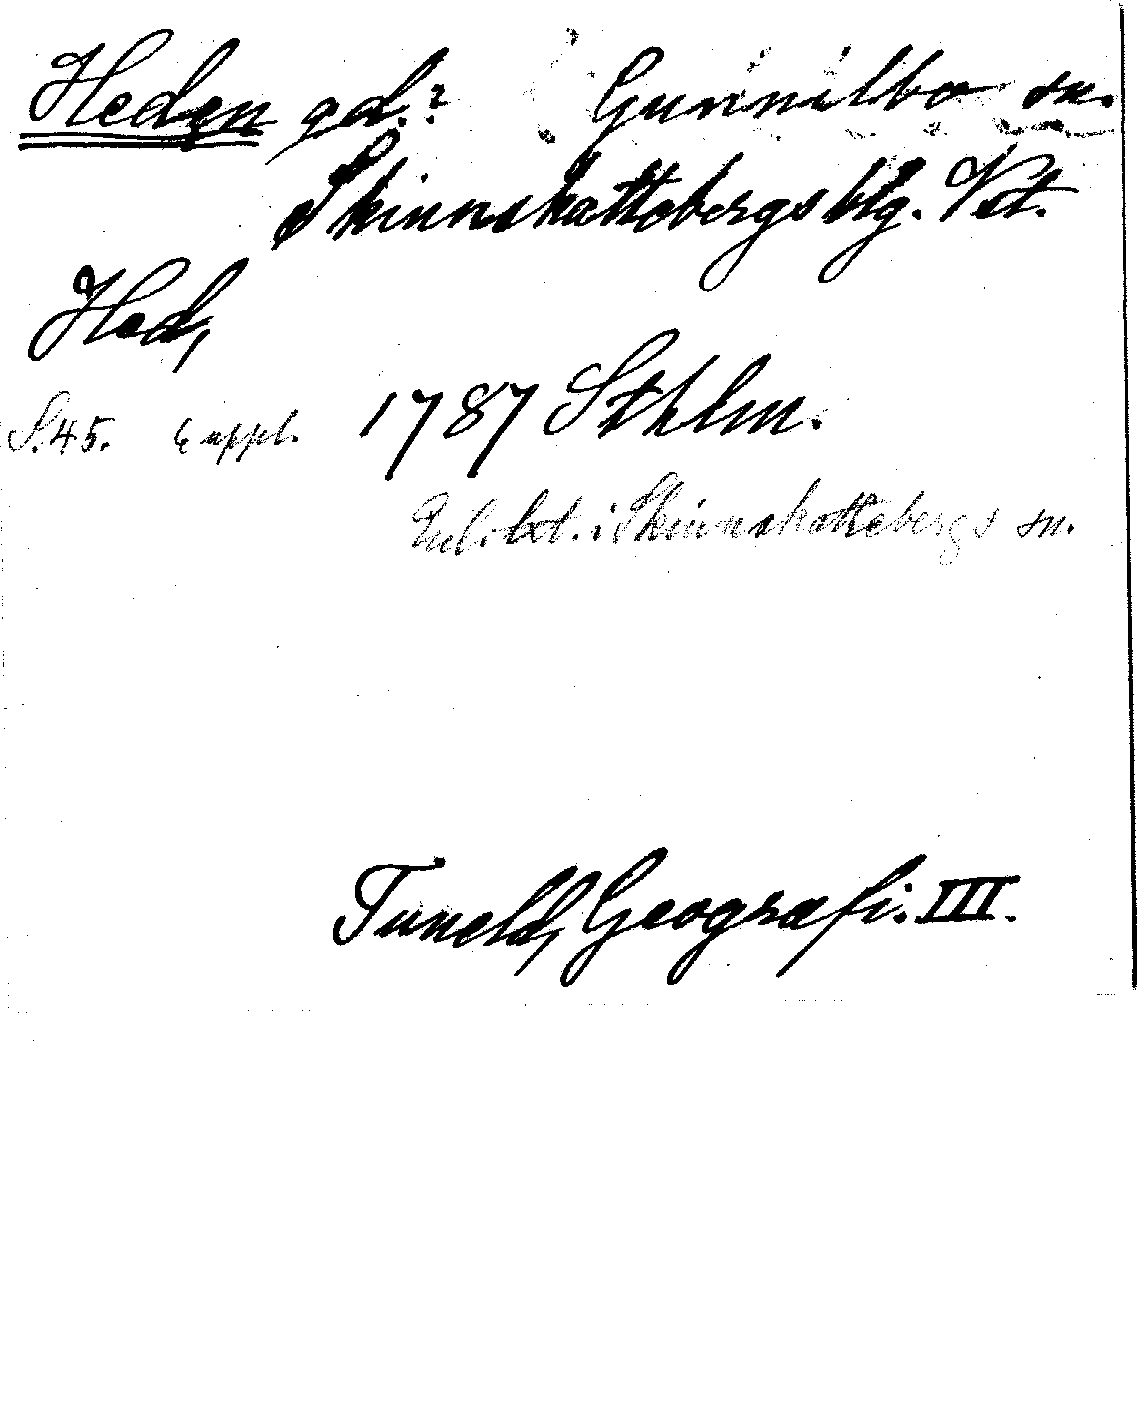 Heden gd.? Gunnilbo sn.
Skinnskattebergs blg. Vst.
Hed,
S. 45. 6 uppl. 1787 Sthlm.
Enl. txt. i Skinnskattebergs sn.
Tuneld, Geografi. III.